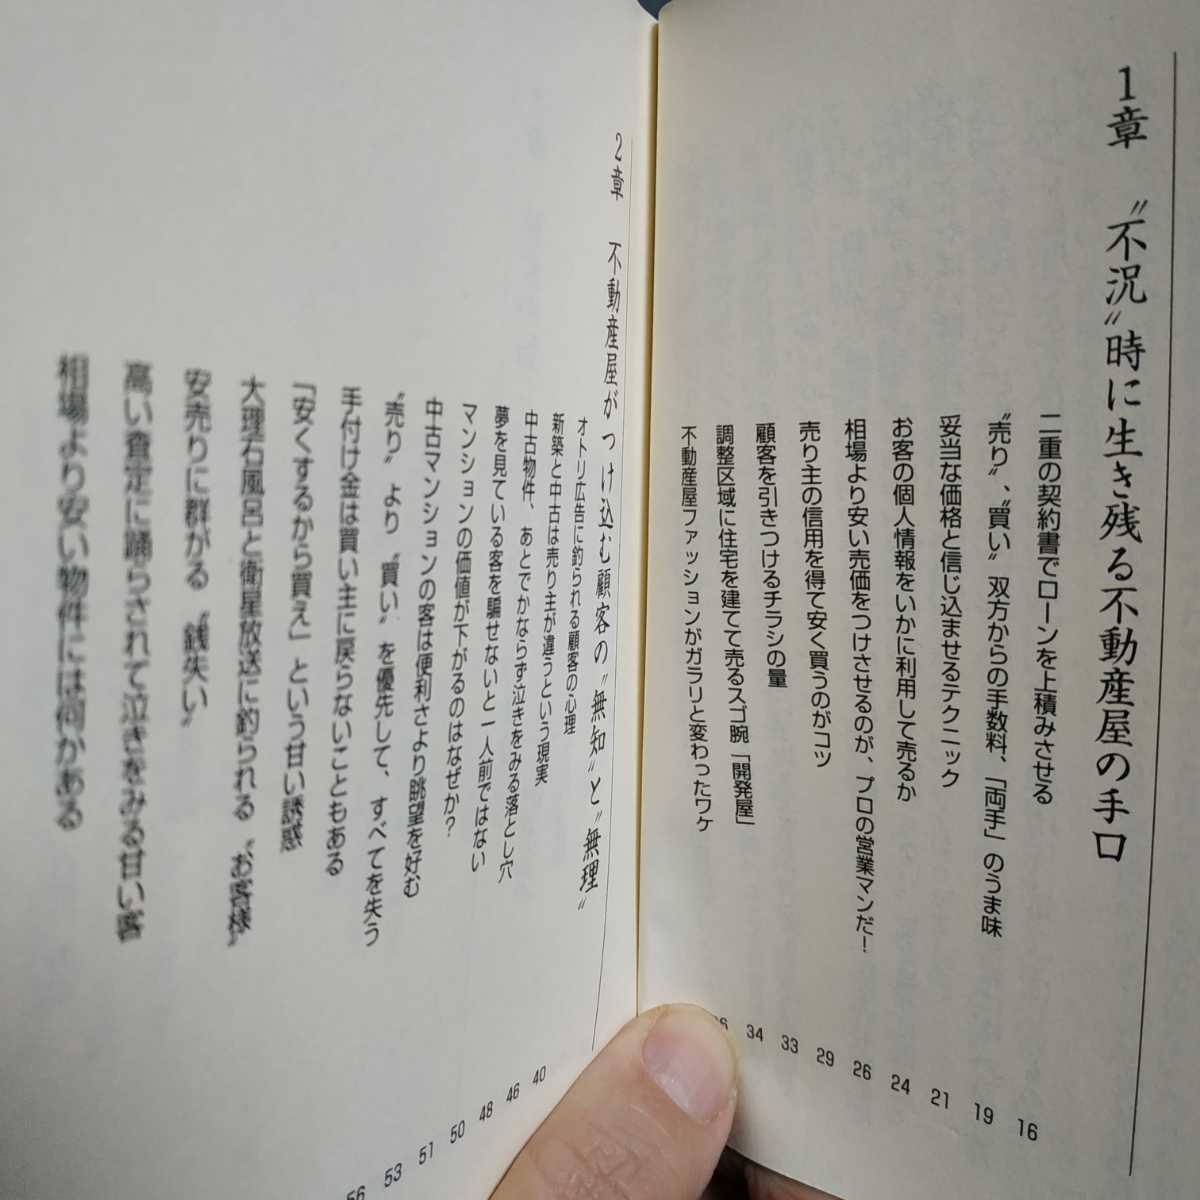 1章 〝不況〟時に生き残る不動産屋の手口
二重の契約書でローンを上積みさせる
〝売り〟、〝買い〟双方からの手数料、「両手」のうま味
妥当な価格と信じ込ませるテクニック
お客の個人情報をいかに利用して売るか
相場より安い売価をつけさせるのが、プロの営業マンだ！
売り主の信用を得て安く買うのがコツ
顧客を引きつけるチラシの量
調整区域に住宅を建てて売るスゴ腕「開発屋」
不動産屋ファッションがガラリと変わったワケ
16
19
21
24
26
29
33
34
2章 不動産屋がつけ込む顧客の〝無知〟と〝無理〟
オトリ広告に釣られる顧客の心理
新築と中古は売り主が違うという現実
中古物件、あとでかならず泣きをみる落とし穴
夢を見ている客を騙せないと一人前ではない
マンションの価値が下がるのはなぜか？
中古マンションの客は便利さより眺望を好む
〝売り〟より〝買い〟を優先して、すべてを失う
手付け金は買い主に戻らないこともある
「安くするから買え」という甘い誘惑
大理石風呂と衛星放送に釣られる〝お客様〟
安売りに群がる〝銭失い〟
高い査定に踊らされて泣きをみる甘い客
相場より安い物件には何かある
40
46
48
50
51
53
56